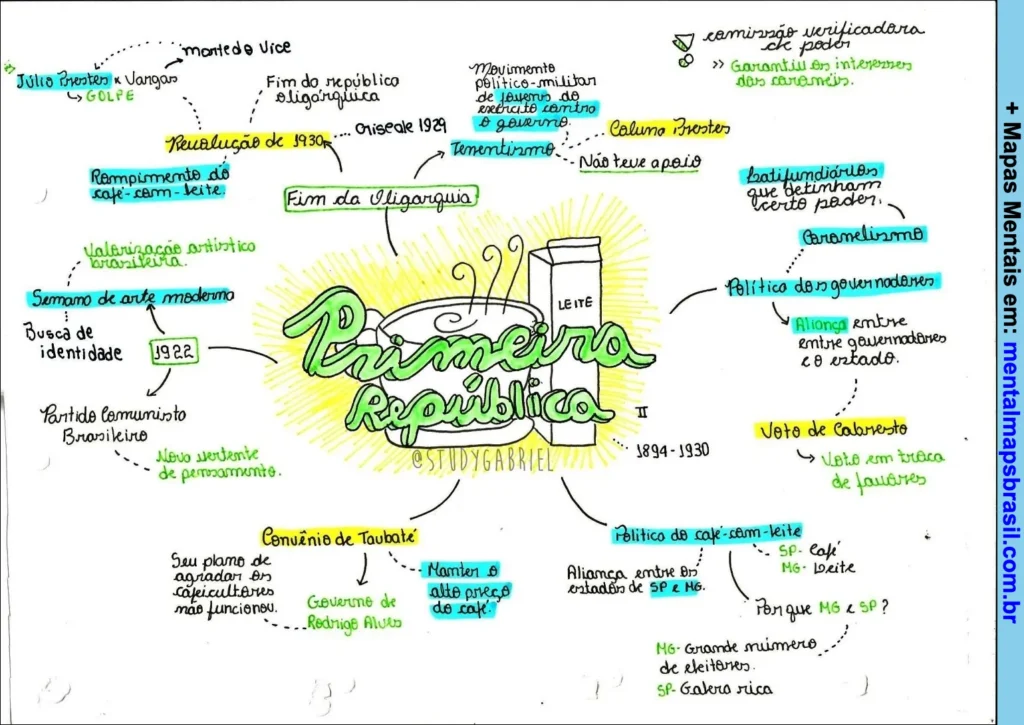 morte do Vice
Júlio Prestes x Vargas
GOLPE
Fim da república
oligárquica
Revolução de 1930
Crise de 1929
Rompimento do
café-com-leite.
Fim da Oligarquia
Movimento
político-militar
de jovens do
exército contra
o governo.
Tenentismo
Coluna Prestes
Não teve apoio
comissão verificadora
de poder
>> Garantiu os interesses
dos coronéis.
Latifundiários
que detinham
certo poder.
Coronelismo
Política dos governadores
Aliança entre
entre governadores
e o estado.
Voto de Cabresto
Voto em troca
de favores
Valorização artística
brasileira.
Semana de arte moderna
Busca de
identidade
1922
Partido Comunista
Brasileiro
Nova vertente
de pensamento.
LEITE
Primeira
República
II
1894-1930
@STUDYGABRIEL
Convênio de Taubaté
Seu plano de
agradar os
cafeicultores
não funcionou.
Governo de
Rodrigo Alves
Manter o
alto preço
do café.
Política do café-com-leite
SP- Café
MG- Leite
Aliança entre os
estados de SP e MG.
Por que MG e SP?
MG- Grande número
de eleitores.
SP- Galera rica
+ Mapas Mentais em: mentalmapsbrasil.com.br